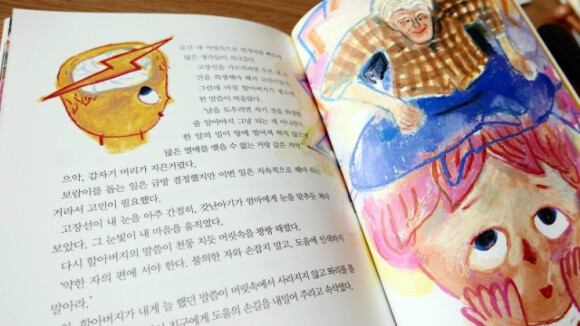 순간 내 머릿속으로
많은 생각들이 지나갔다.
고장선을
간을 희생해야 해서 고민이었다.
그런데 마침 할아버지가 평소에
한 말씀이 떠올랐다.
'남을 도우려면 자기 것을 희생할
줄 알아야지 그냥 되는 게 아니란다.
한 알의 밀이 땅에 떨어져 썩지 않으면
많은 열매를 맺을 수 없는 거랑 같은 거야.'
으악, 갑자기 머리가 지끈거렸다.
보람이를 돕는 일은 금방 결정했지만 이번 일은 지속적으로 해야 하는
거라서 고민이 필요했다.
고장선이 내 눈을 아주 간절히, 갓난아기가 엄마에게 눈을 맞추듯 쳐다
보았다. 그 눈빛이 내 마음을 움직였다.
다시 할아버지의 말씀이 천둥 치듯 머릿속을 쾅쾅 때렸다.
'약한 자의 편에 서야 한다. 불의한 자와 손잡지 말고, 도움에 인색하지
말아라.'
할아버지가 내게 늘 했던 말씀이 머릿속에서 사라지지 않고 똬리를 틀
친구에게 도움의 손길을 내밀어 주라고 속삭였다.